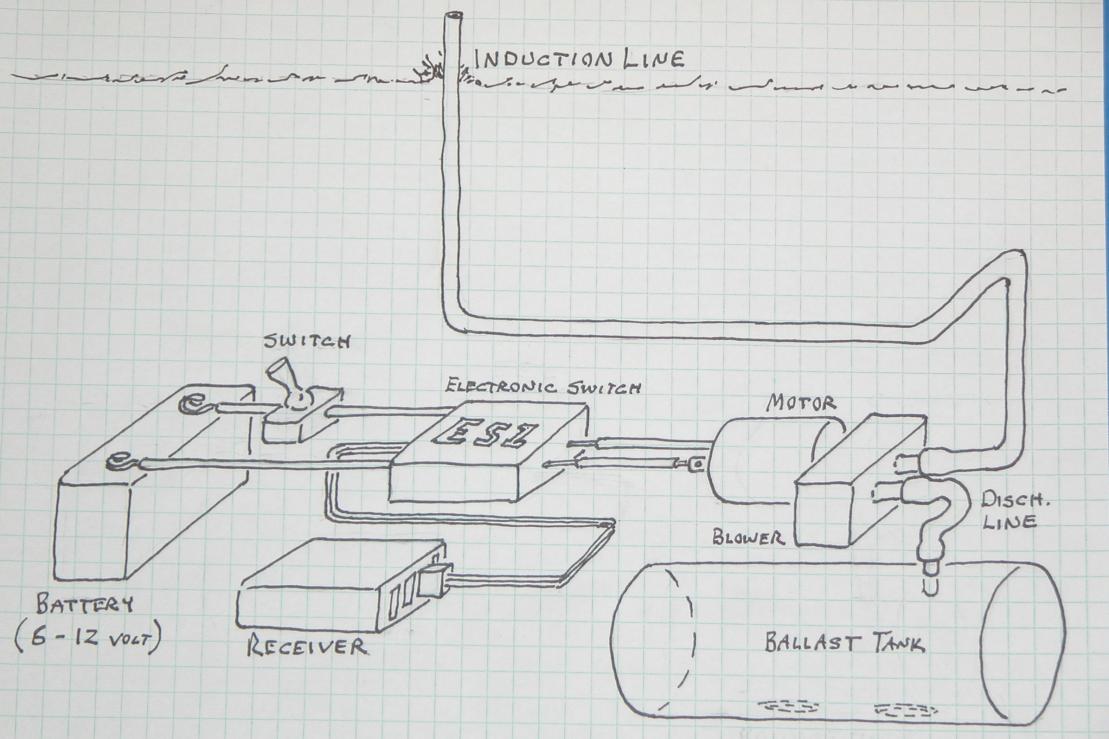 INDUCTION LINE
SWITCH
ELECTRONIC SWITCH
ES1
MOTOR
DISCH.
LINE
BLOWER
BATTERY
(6-12 VOLT)
RECEIVER
BALLAST TANK